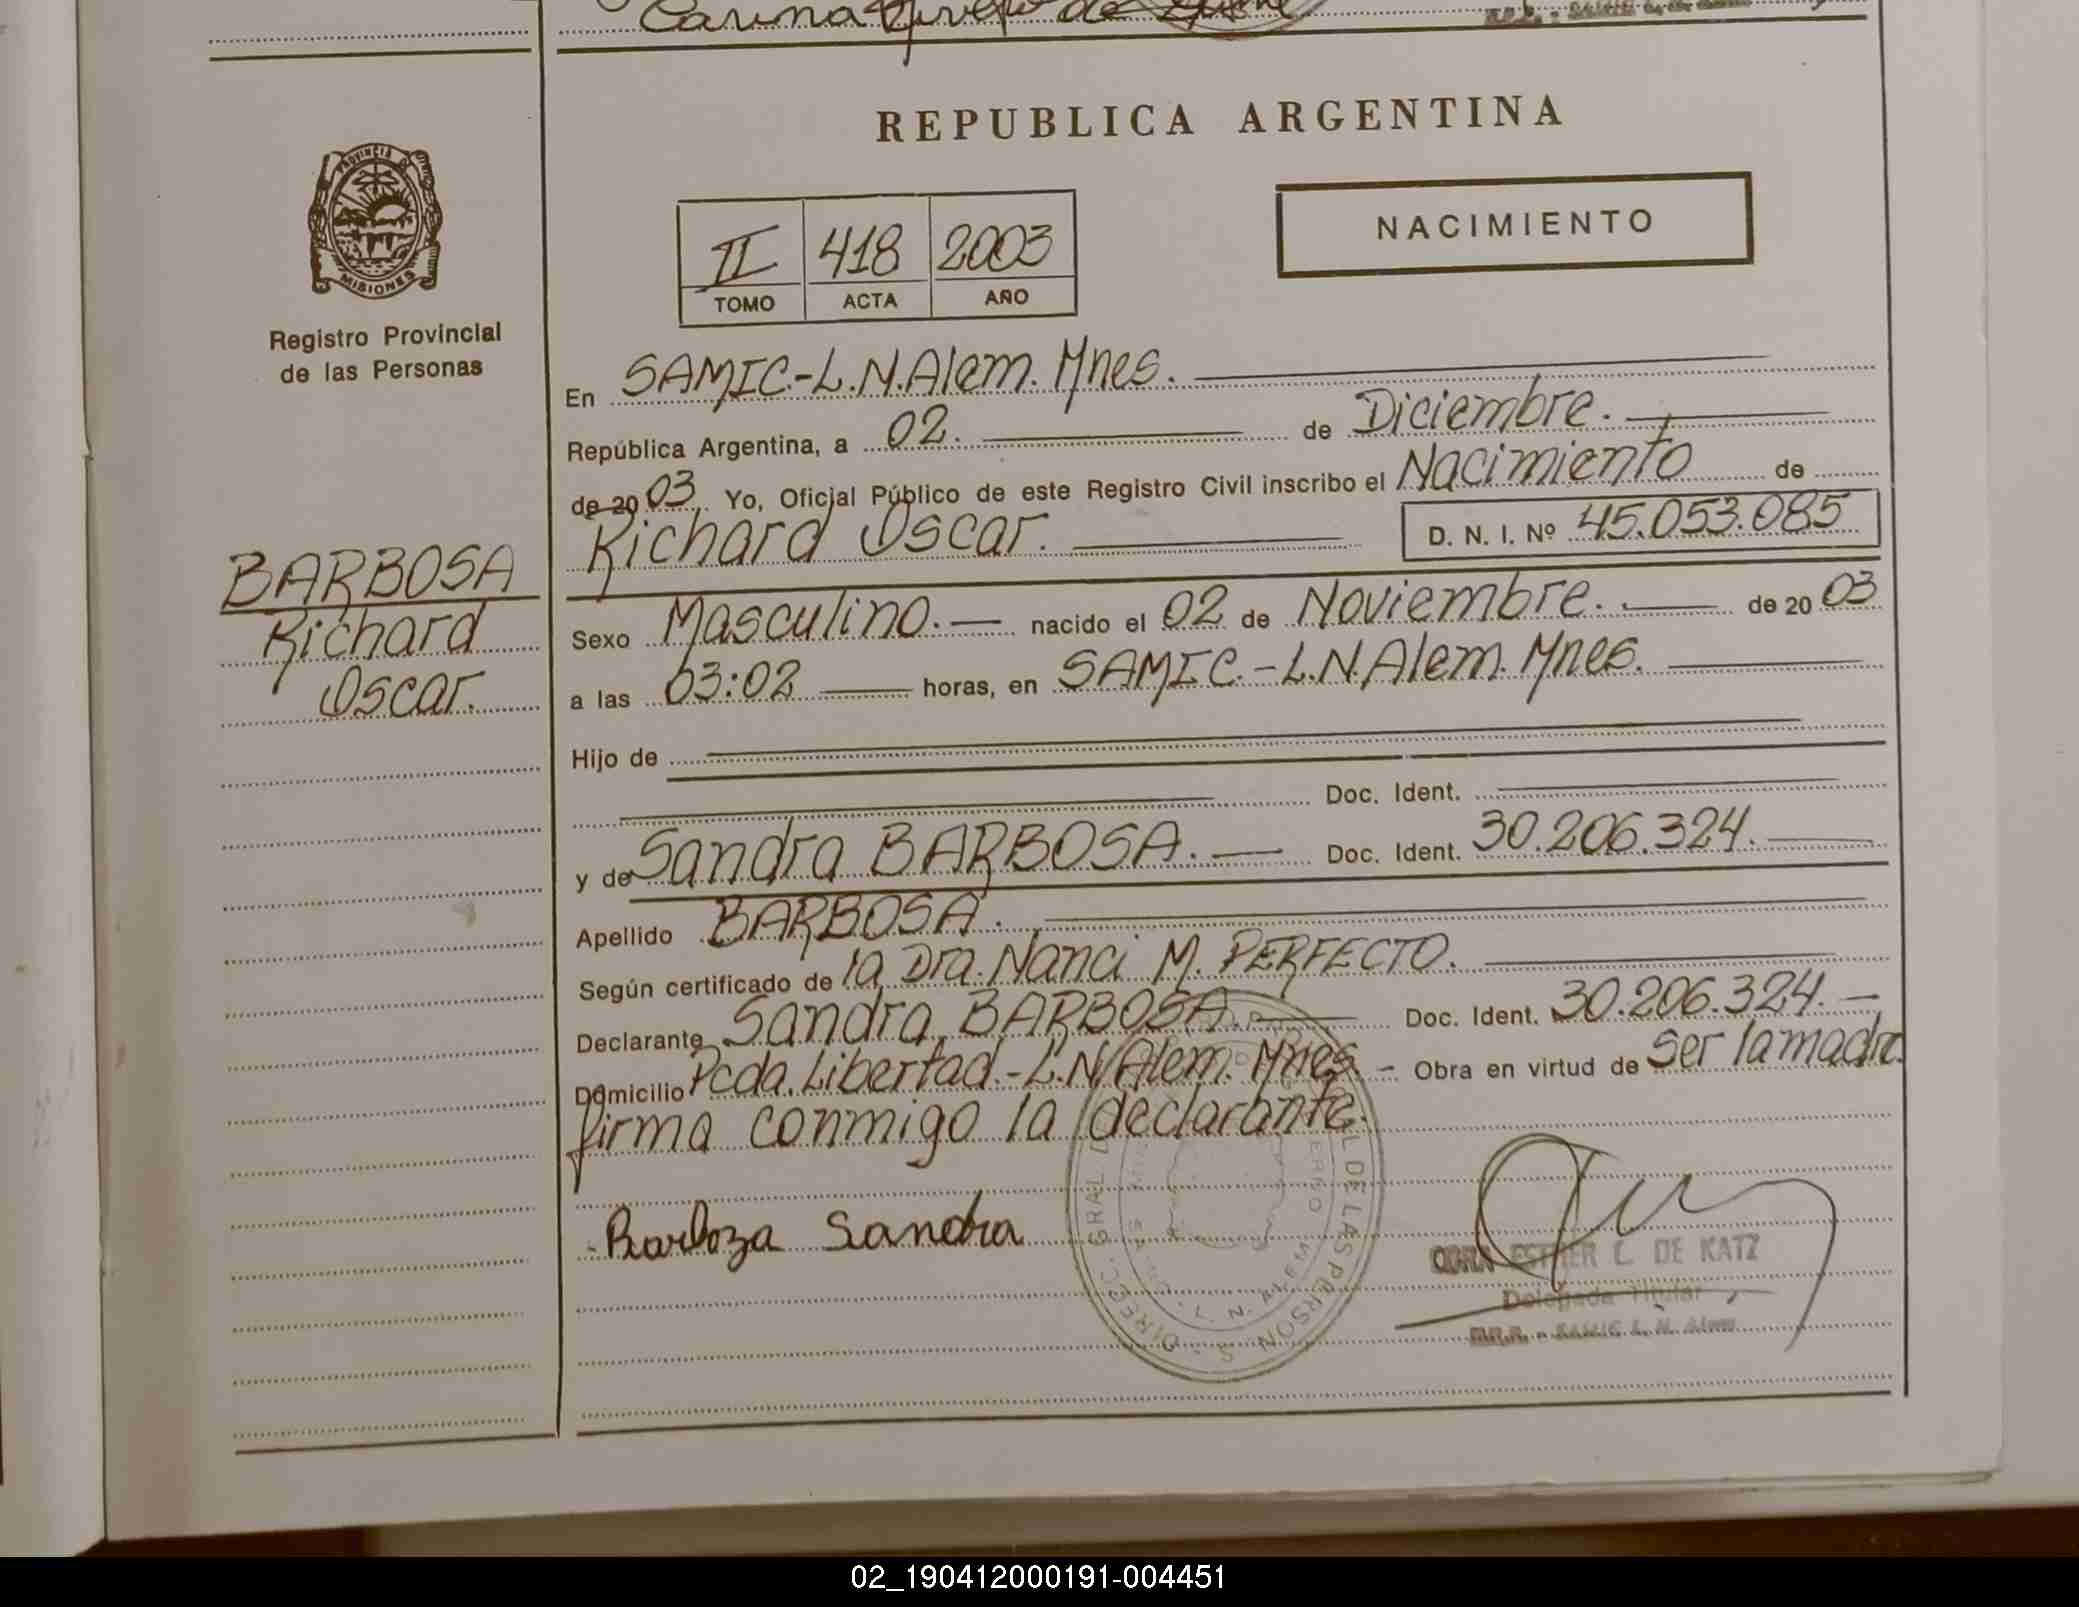 Carina
REPUBLICA ARGENTINA
PROVINCIA DE
MISIONES
Registro Provincial
de las Personas
NACIMIENTO
II 418 2003
TOMO ACTA AÑO
En SAMIC.-L.N.Alem. Mnes.
República Argentina, a 02. de Diciembre.
de 2003 Yo, Oficial Público de este Registro Civil inscribo el Nacimiento de
Richard Oscar. D. N. I. Nº 45.053.085
BARBOSA
Richard
Oscar.
Sexo Masculino. nacido el 02 de Noviembre. de 2003
a las 03:02 horas, en SAMIC.-L.N.Alem. Mnes.
Hijo de
Doc. Ident.
y de Sandra BARBOSA. Doc. Ident. 30.206.324.
Apellido BARBOSA.
Según certificado de la Dra. Nanci M. PERFECTO.
Declarante Sandra BARBOSA. Doc. Ident. 30.206.324.
Domicilio Pcda. Libertad.-L.N.Alem. Mnes. - Obra en virtud de Ser la madre.
firma conmigo la declarante.
Barboza Sandra
DIREC. GRAL DE LAS PERSONAS
L. N. ALEM
ESTHER C. DE KATZ
Delegada Titular
SAMIC L. N. Alem
02_190412000191-004451